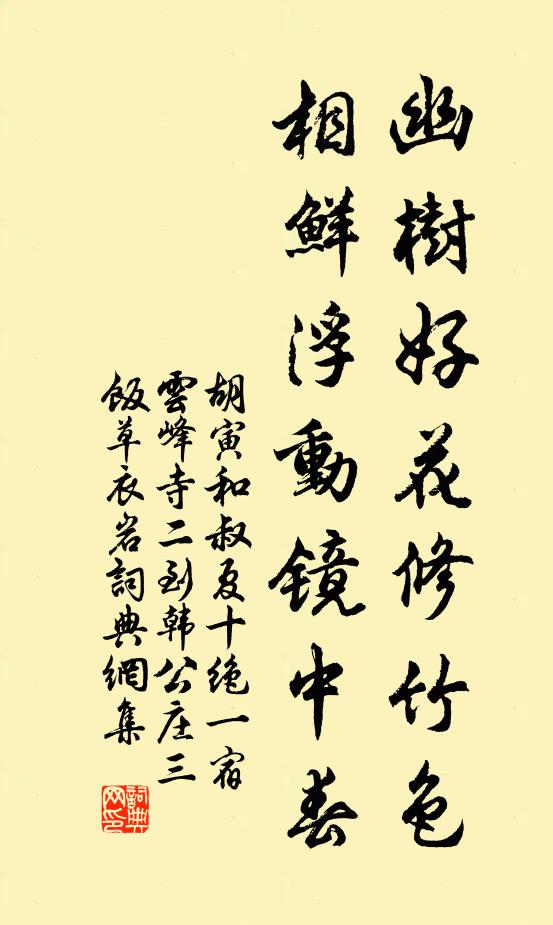 幽樹好花修竹色
相鮮浮動鏡中春
胡寅和叔夏十絶一宿
雲峰寺二到韓公庄三
飯草衣岩詞典網集
詞典
网印